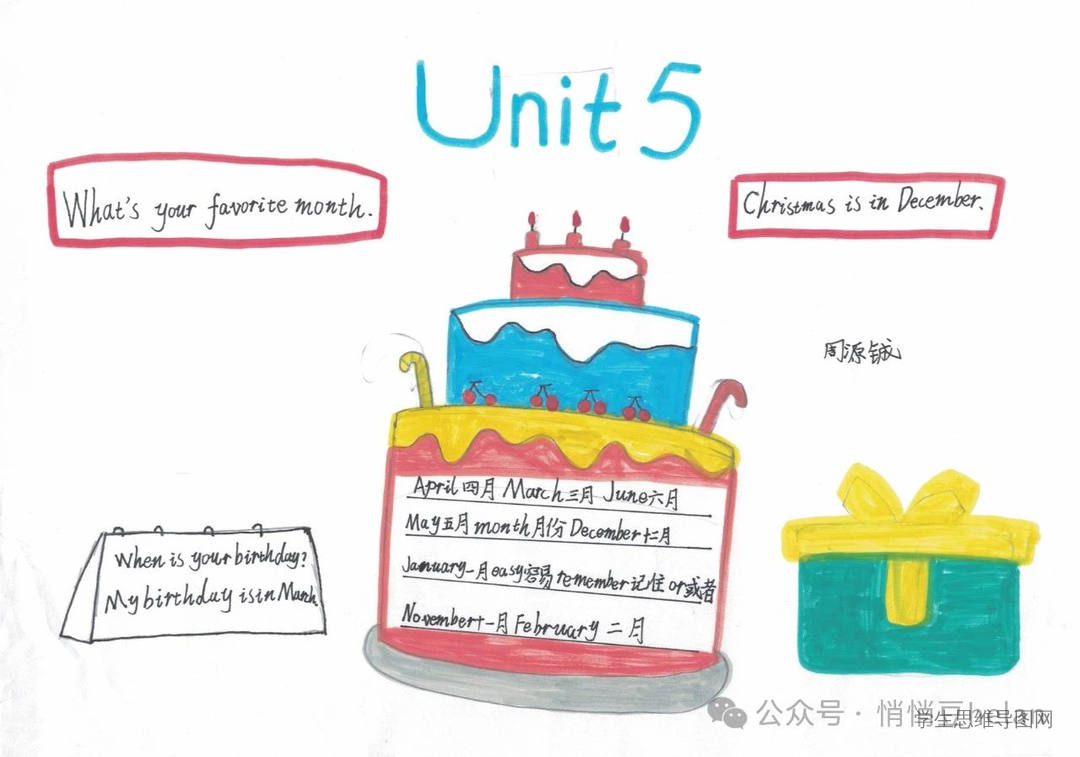 Unit 5
What's your favorite month.
Christmas is in December.
周源铖
April 四月 March 三月 June 六月
May 五月 month 月份 December 十二月
January 一月 easy 容易 remember 记住 or 或者
November 十一月 February 二月
When is your birthday?
My birthday is in March.
公众号·悄悄豆
学生思维导图网